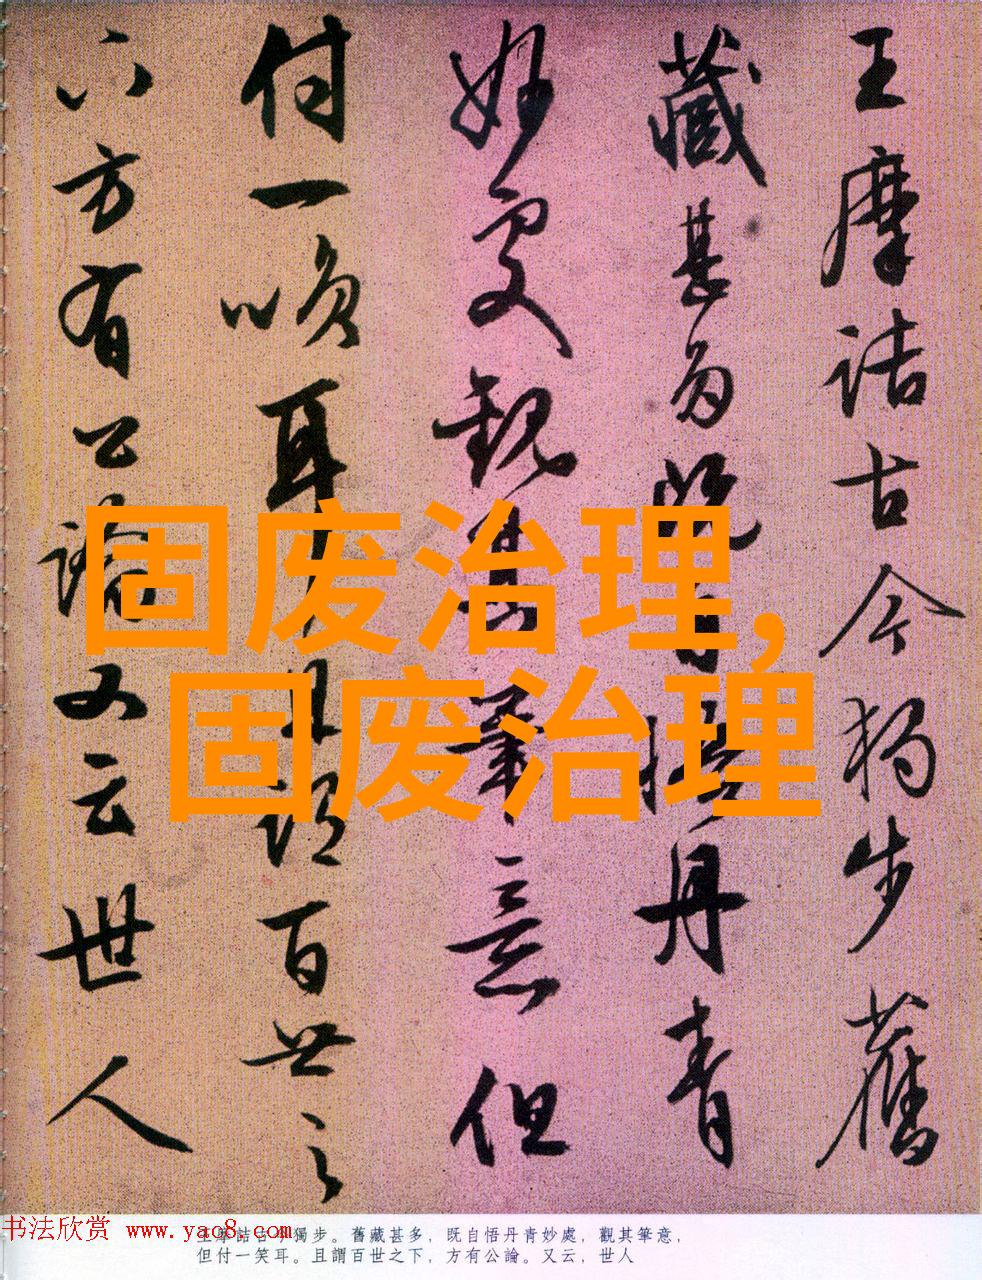 王摩詰古今獨步舊
藏甚多既自悟丹青
妙處觀其筆意但
付一笑耳且謂百世之
下方有公論又云世人
固废治理,
固废治理
书法欣赏 www.yac8.com
王摩詰古今獨步。舊藏甚多，既自悟丹青妙處，觀其筆意，
但付一笑耳。且謂百世之下，方有公論。又云，世人